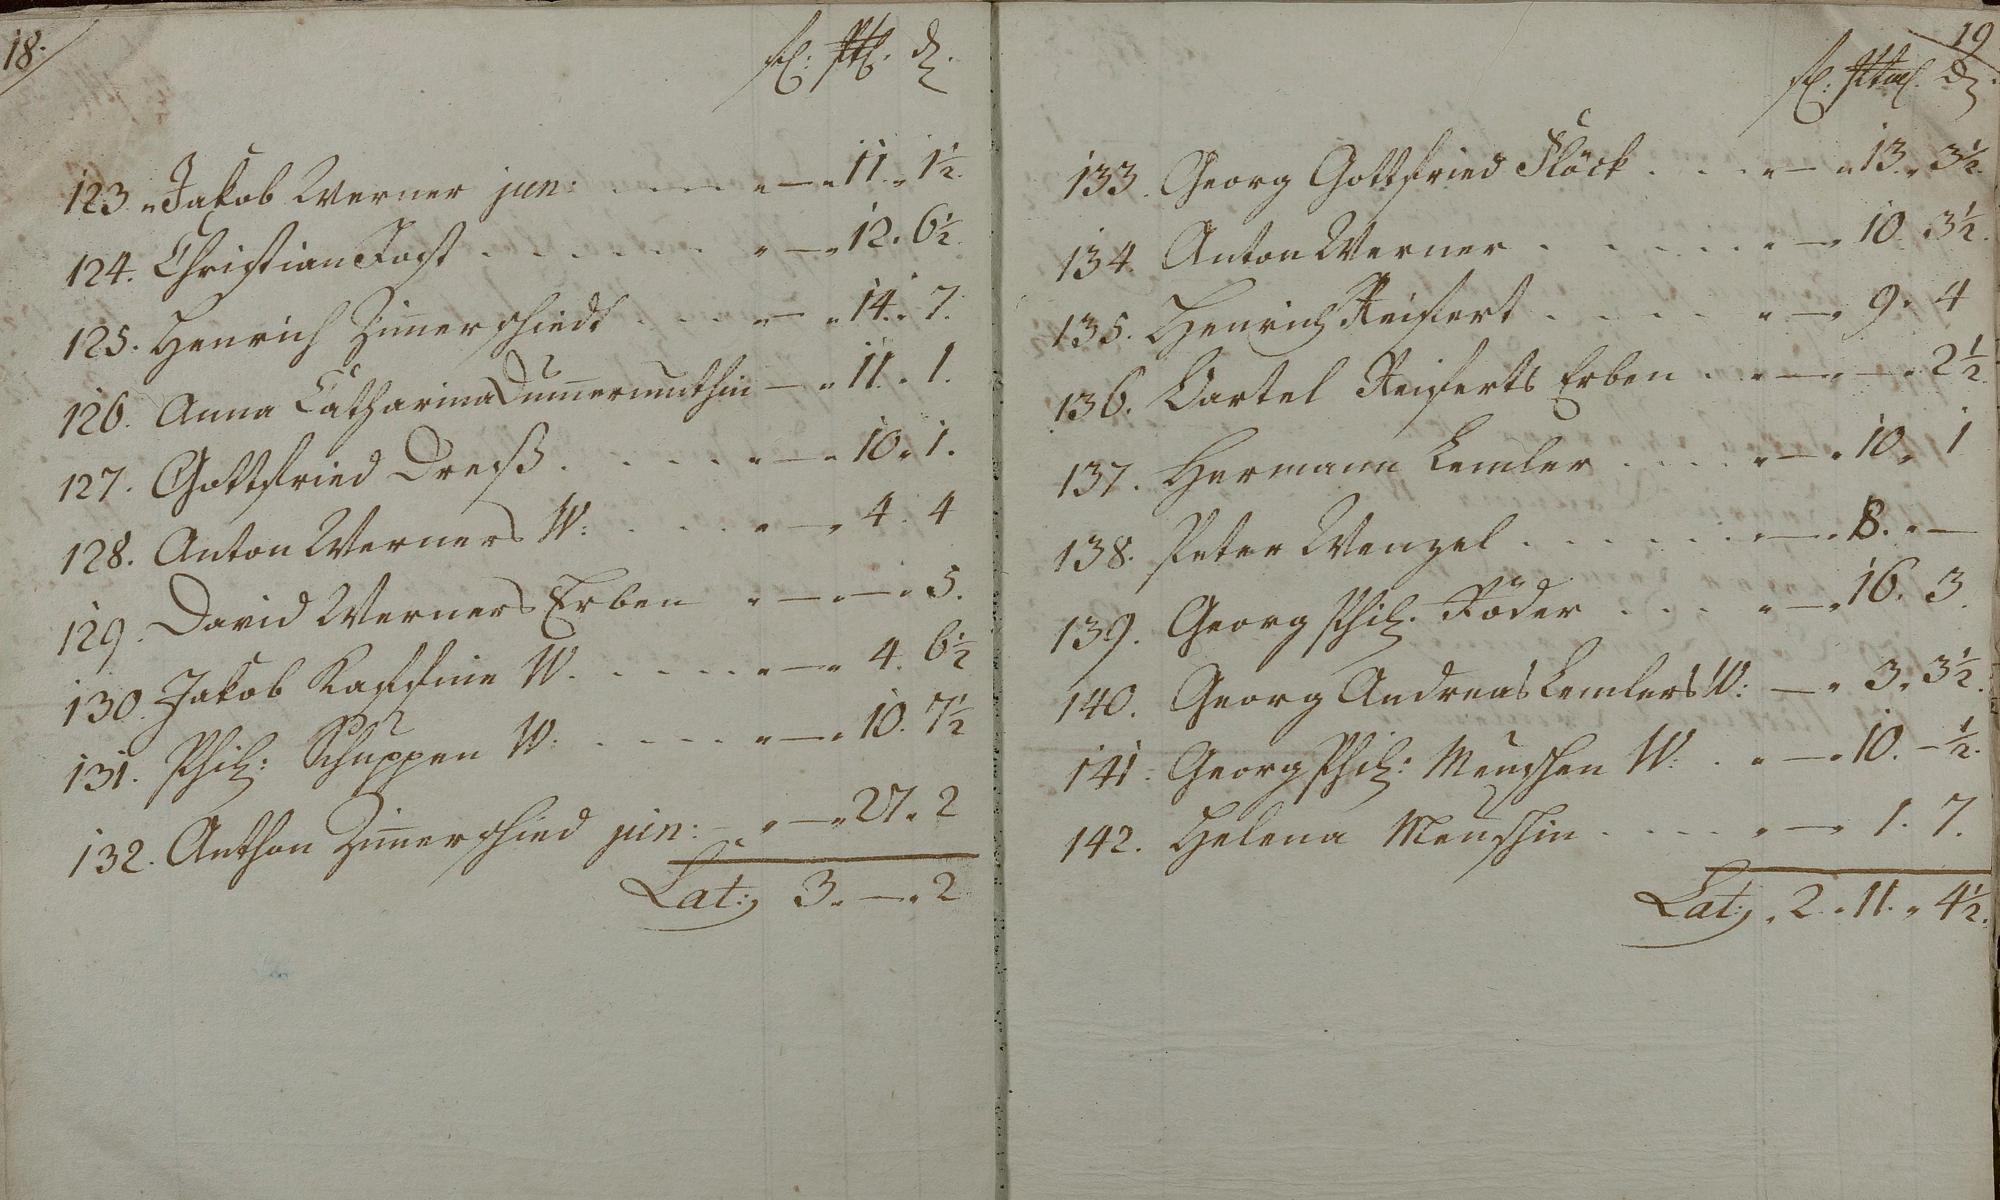 18.
fl: Stl. d.
123. Jakob Werner jun: . . . . . „ — „ 11. „ 1½.
124. Christian Jost . . . . . . „ — „ 12. 6½.
125. Henrich Zim̅erschiedt . . . . „ — „ 14. „ 7.
126. Anna Catharina Dum̅ermuthin — „ 11. „ 1.
127. Gottfried Dreyß . . . . . „ — „ 10 „ 1.
128. Anton Werners W: . . . . „ — „ 4. 4
129. David Werners Erben „ — „ — „ 5.
130. Jakob Kassine W. . . . . . „ — „ 4. 6½
131. Phil: Schuppen W: . . . . . „ — „ 10. 7½
132. Anthon Zim̅erschied jun: — „ — „ 27 „ 2
Lat: 3. — . 2
19
fl: d.
133. Georg Gottfried Flöck . . . . „ — „ 13 „ 3½.
134. Anton Werner . . . . . . „ — „ 10. 3½.
135. Henrich Reifert . . . . . „ — „ 9. 4
136. Bartel Reiferts Erben . „ — „ — „ 2½.
137. Hermann Lemler . . . . „ — „ 10 „ 1
138. Peter Wenzel . . . . . . „ — „ 8. „ —
139. Georg Phil. Röder . . . . „ — „ 16. 3.
140. Georg Andreas Lemlers W: — „ 3 „ 3½.
141. Georg Phil: Meuschen W. . „ — „ 10. — ½.
142. Helena Meuschin . . . . „ — „ 1. 7.
Lat: „ 2 „ 11. „ 4½.